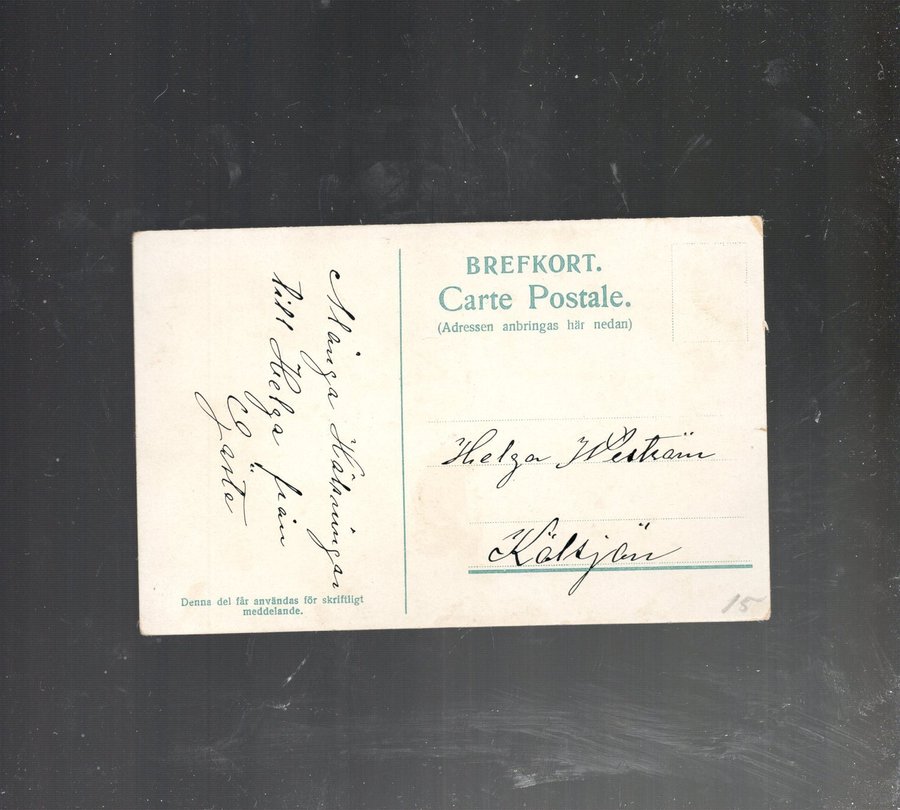 Många Hälsningar
till Helga från
Gösta
Denna del får användas för skriftligt
meddelande.
BREFKORT.
Carte Postale.
(Adressen anbringas här nedan)
Helga Weström
Kölsjön
15